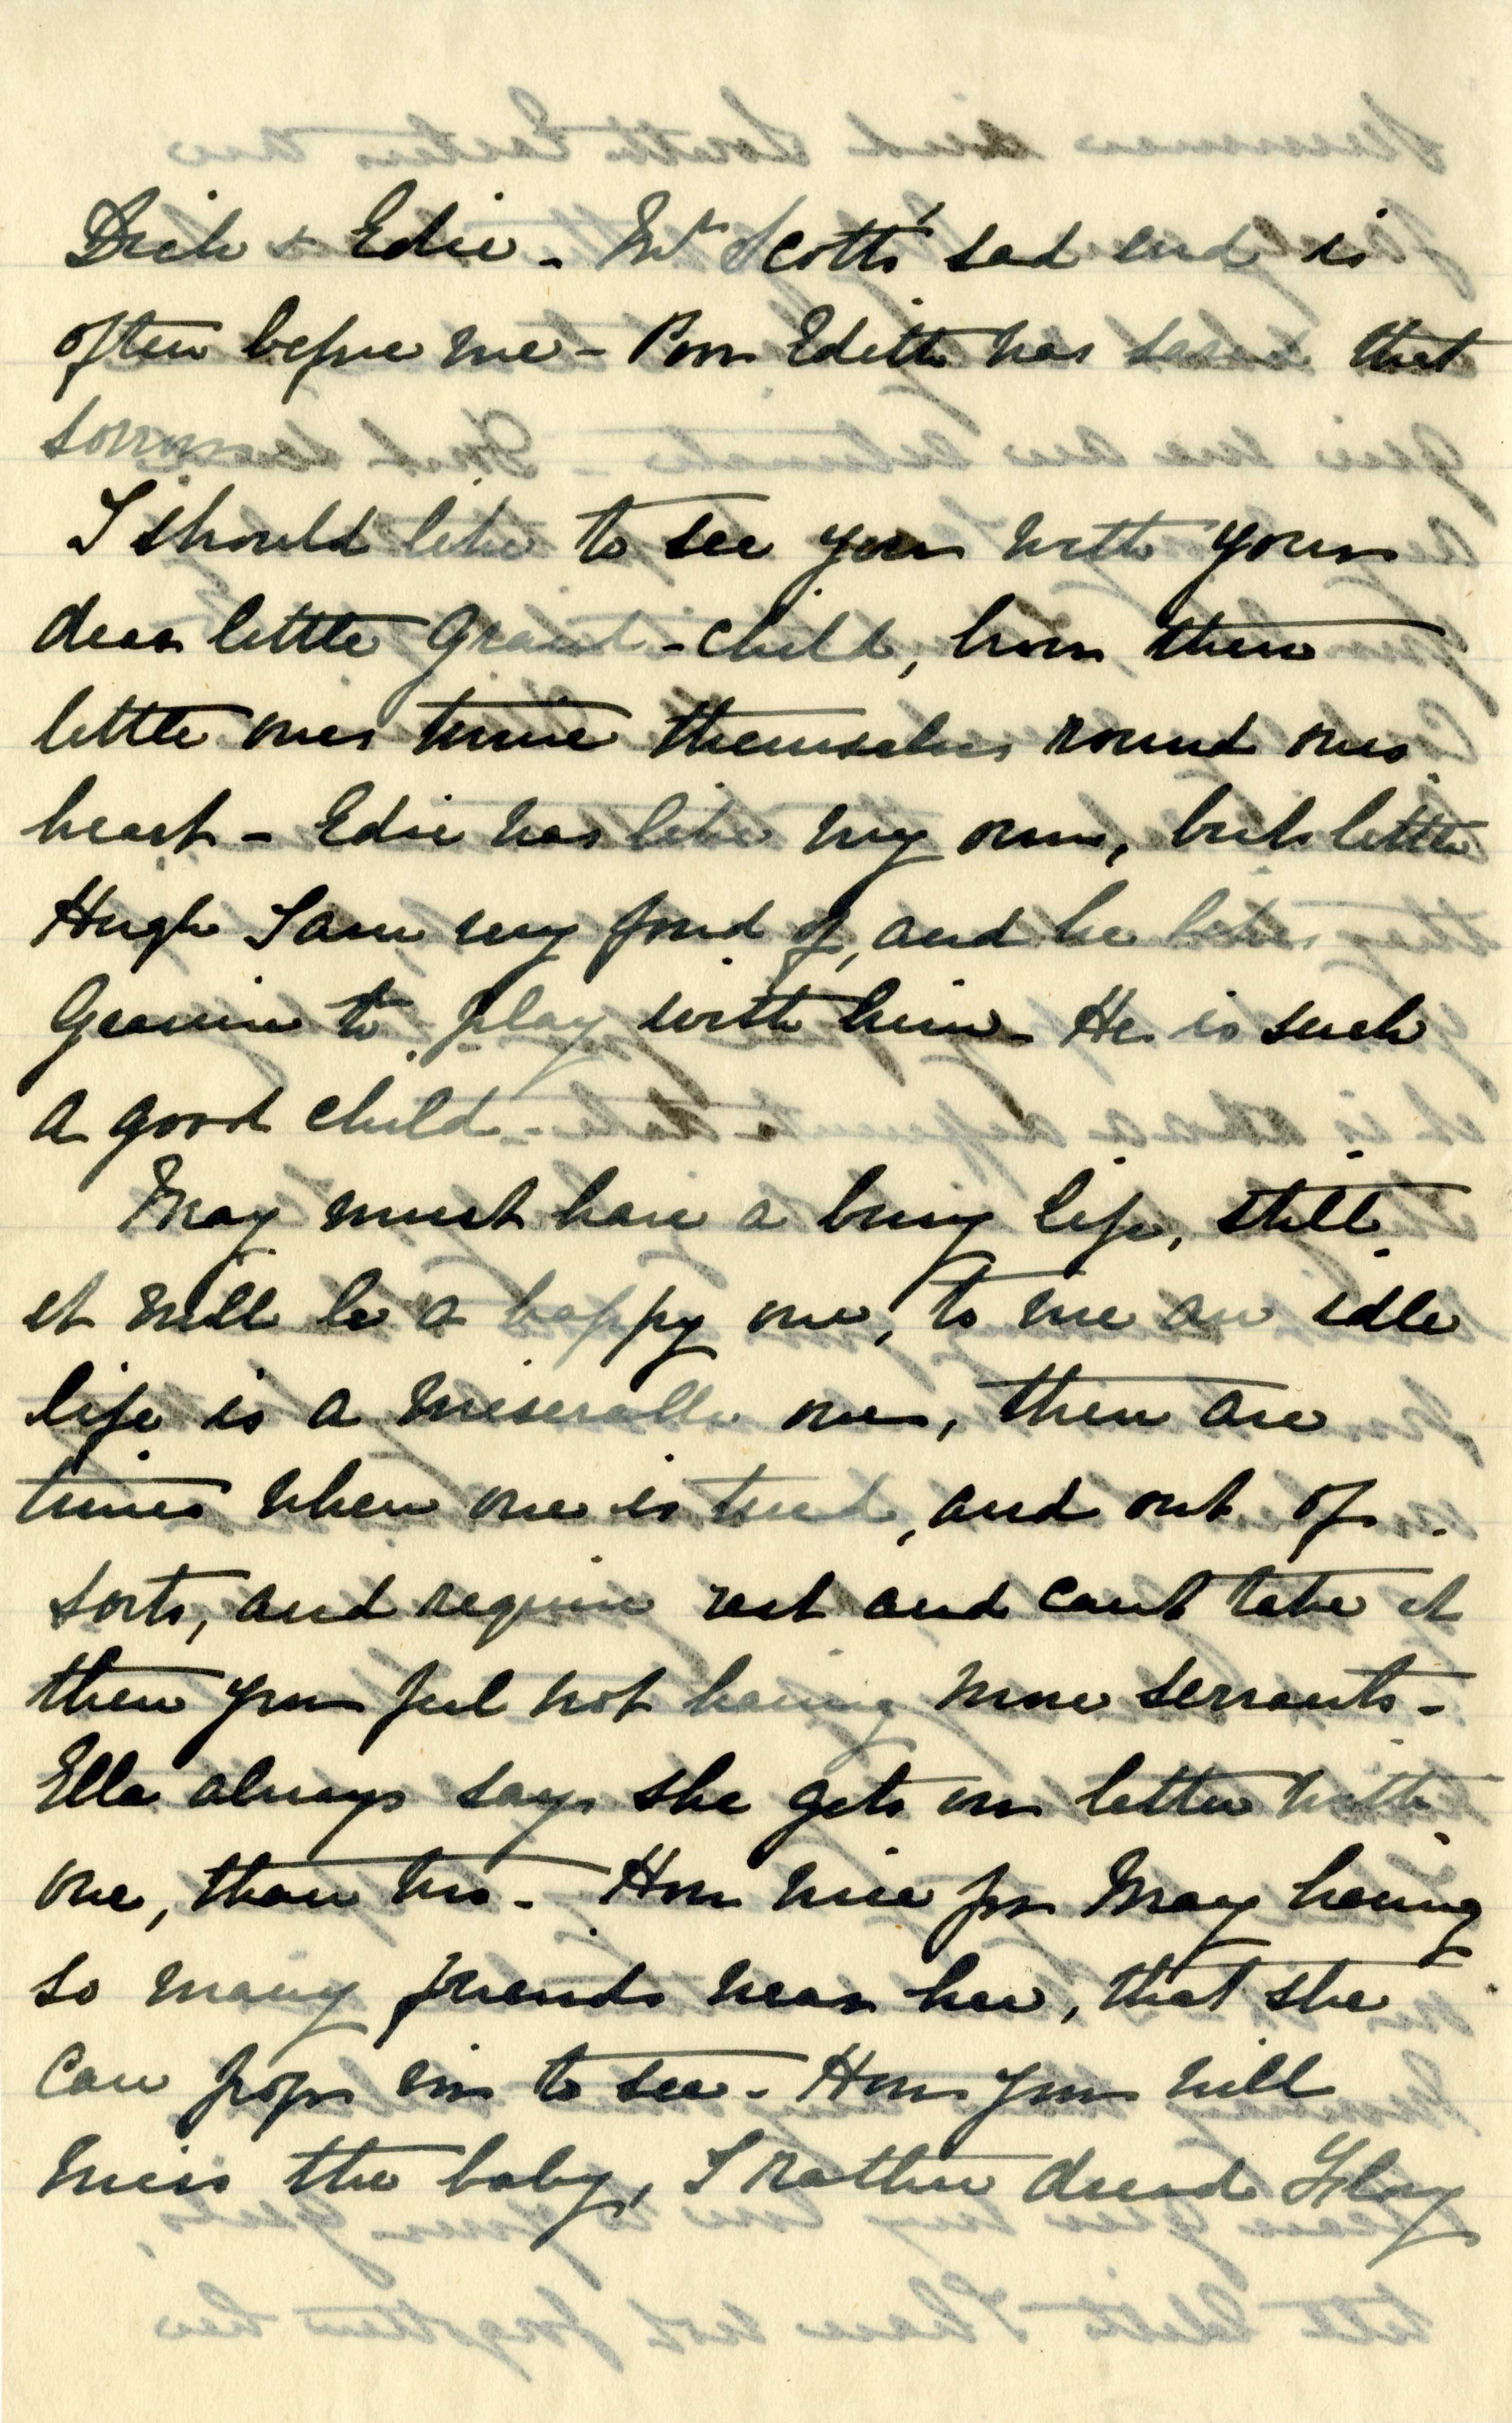 Dick & Edie - Mr Scott's sad end is
often before me - Poor Edith has that
sorrow
I should like to see you with your
dear little Grand-child, how these
little ones twine themselves round ones
heart - Edie was like my own, but little
Hugh I am very fond of, and he likes
Grannie to play with him - He is such
a good child -
May must have a busy life, still
it will be a happy one, to me an idle
life is a miserable one, there are
times when one is tired, and out of
sorts, and require rest and cant take it
then you feel not having more servants -
Ella always says she gets on better with
one, than two - How nice for May having
so many friends near her, that she
can pop in to see - How you will
miss the baby, I rather dread